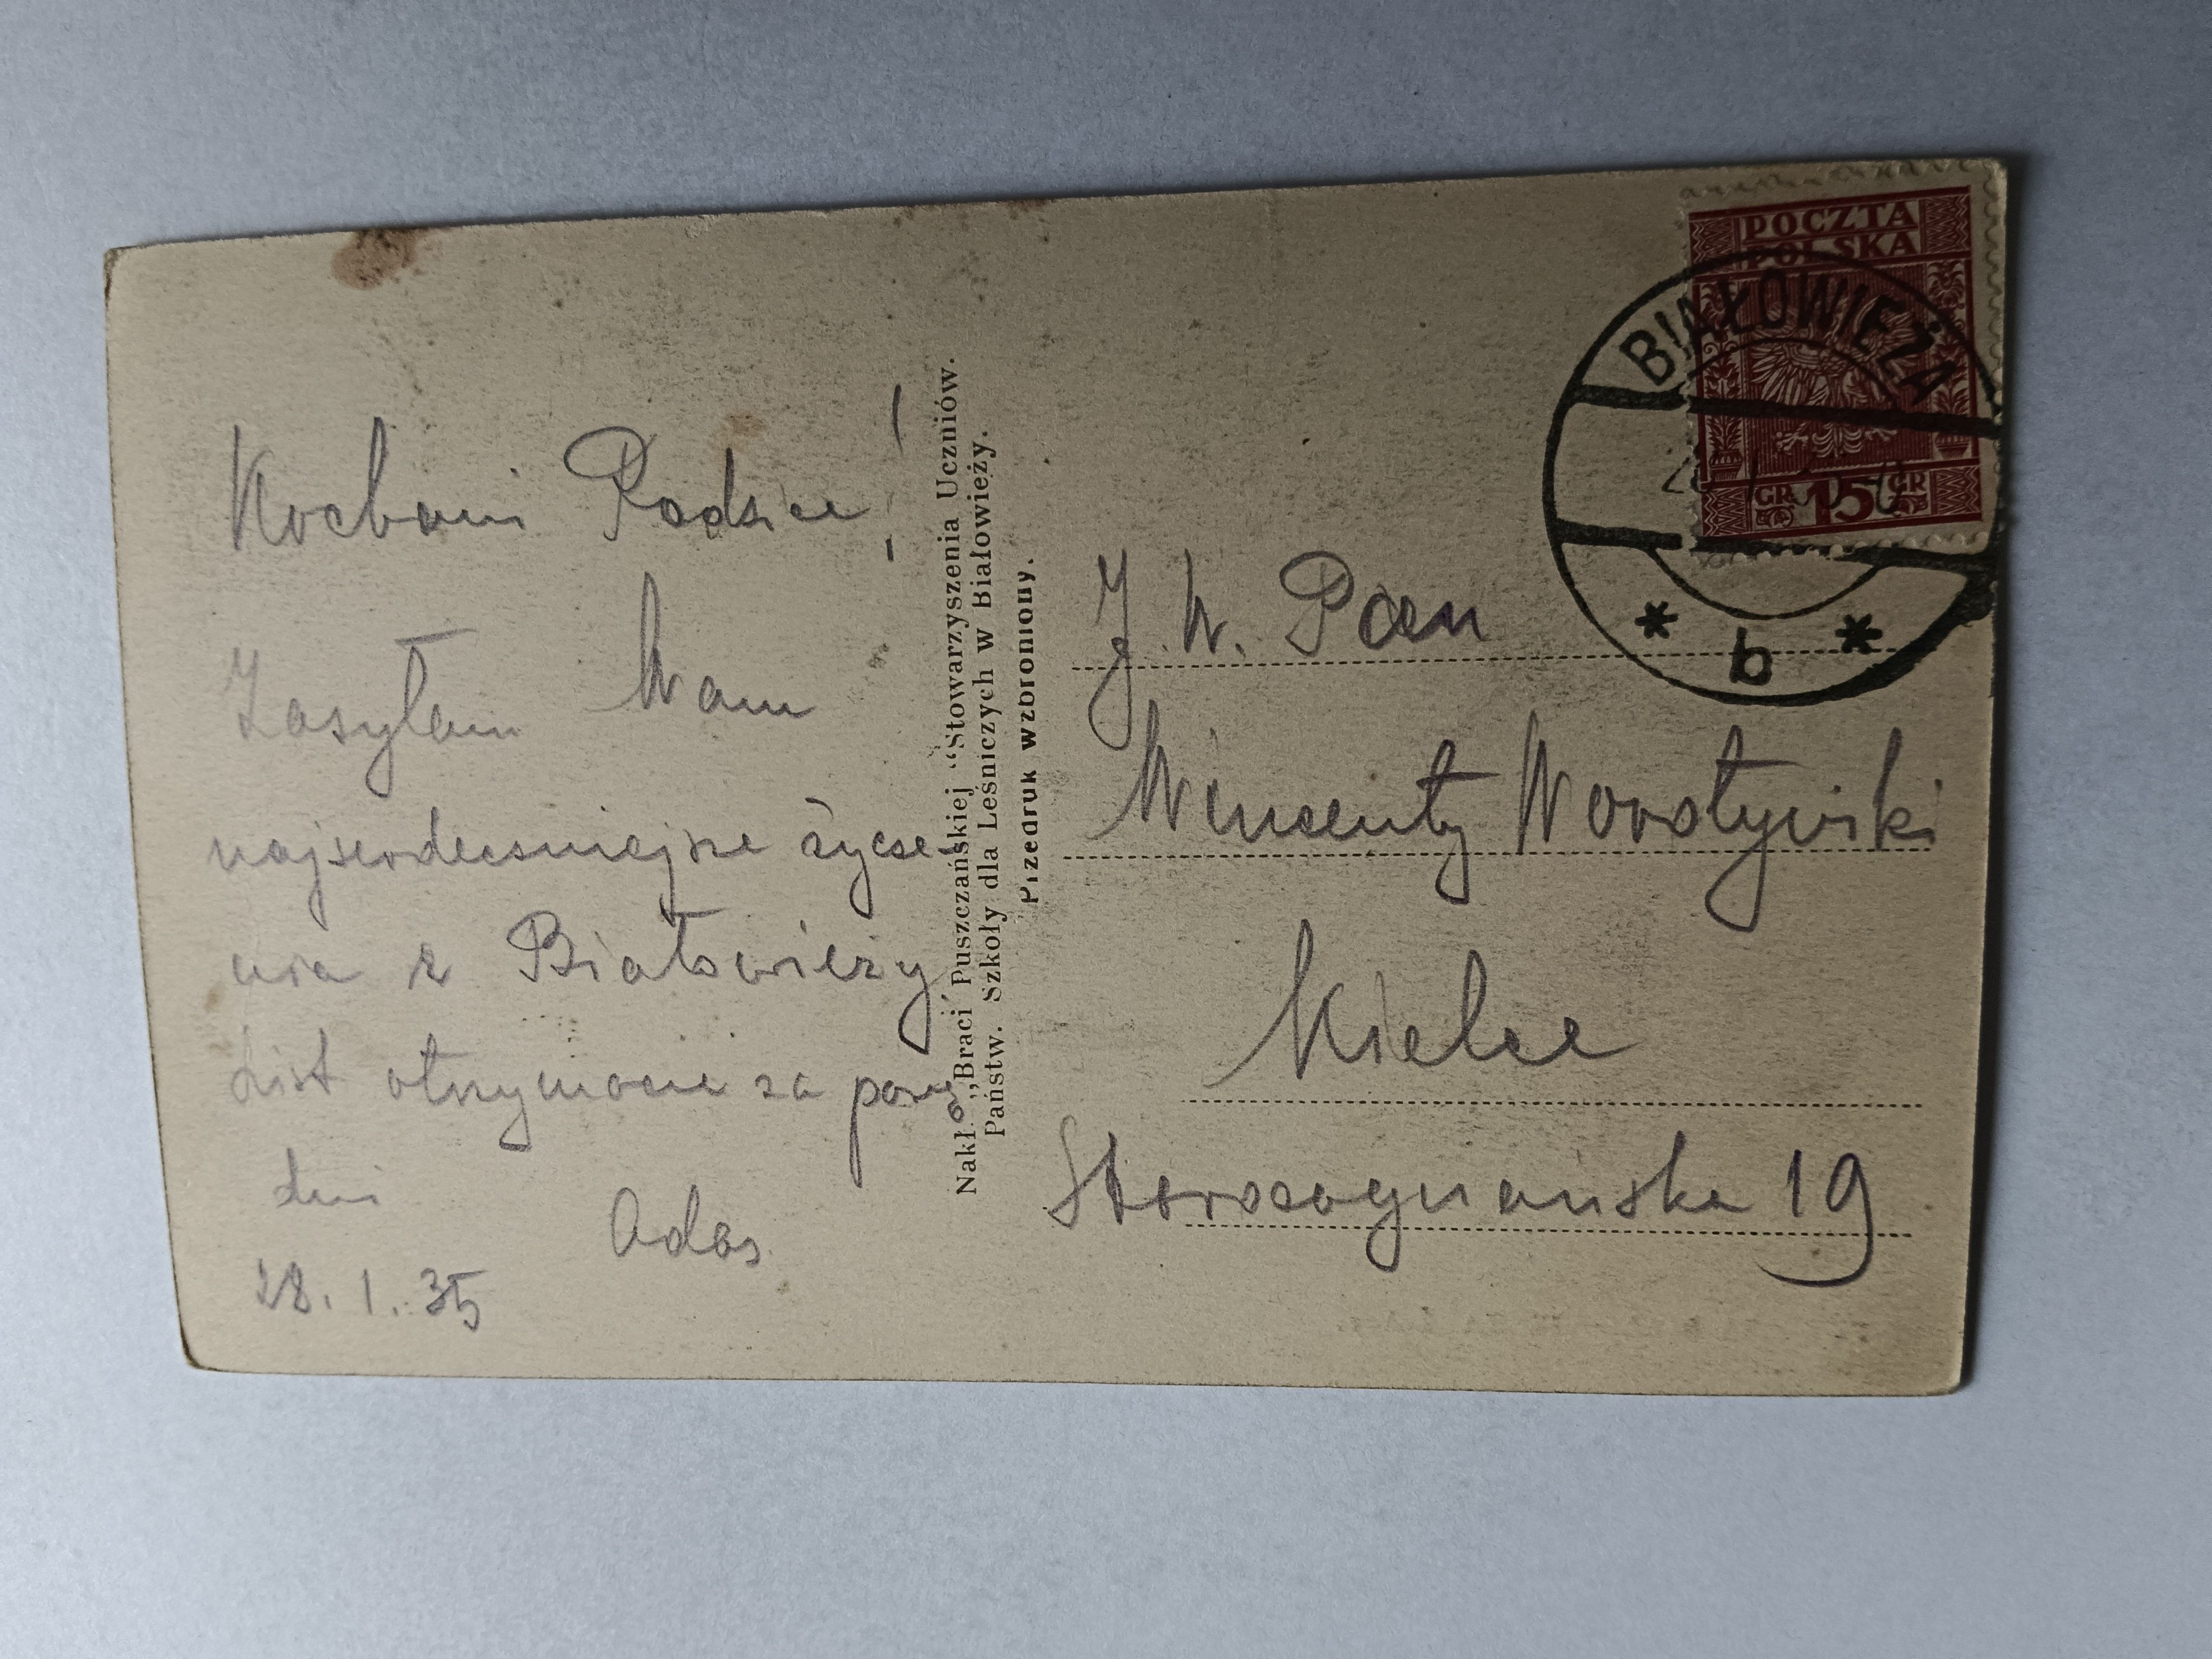 Kochani Rodzice!
Zasyłam Wam
najserdeczniejsze życze-
nia z Białowieży
List otrzymacie za parę
dni
Adaś
28. 1. 35
Nakł. „Braci Puszczańskiej “Stowarzyszenia Uczniów.
Państw. Szkoły dla Leśniczych w Białowieży.
Przedruk wzbroniony.
POCZTA
POLSKA
GR 15 GR
BIAŁOWIEŻA
* b *
J. W. Pan
Wincenty Worotyński
Kielce
Starozagnańska 19